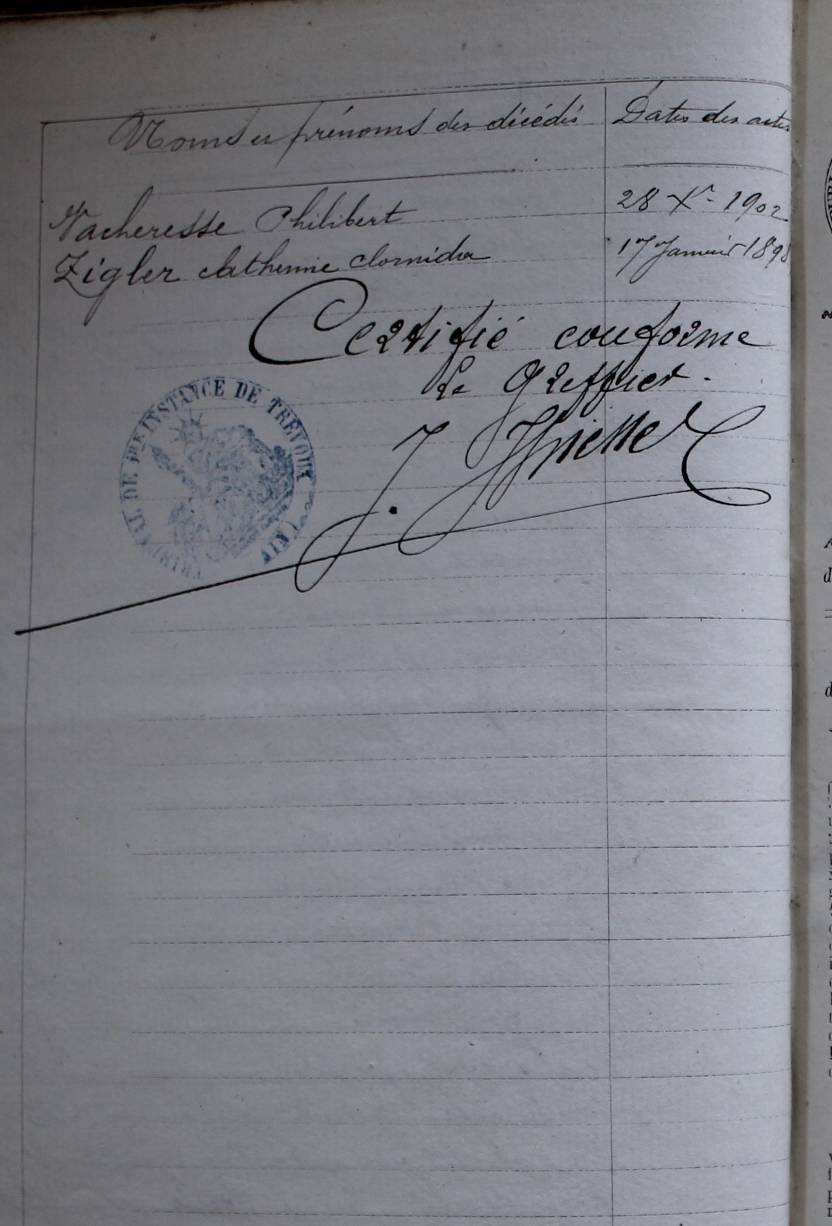 Noms et prénoms des décédés Dates des actes
Vacheresse Philibert 28 Xr 1902
Zigler Catherine 17 Janvier 1898
Certifié conforme
Le Greffier.
J.
TRIBUNAL DE 1RE INSTANCE DE TRÉVOUX
(AIN)